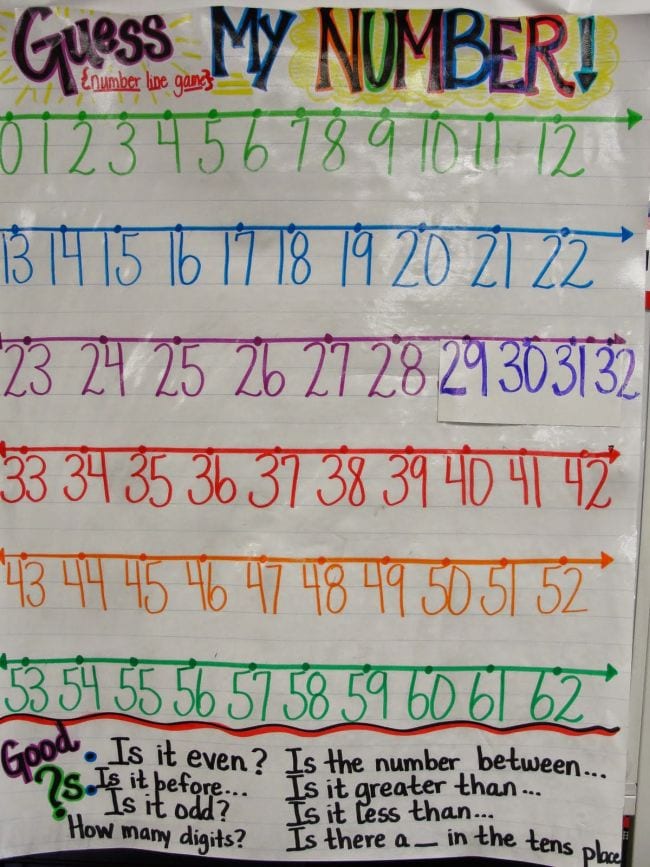 Guess My NUMBER!
{number line game}
0 1 2 3 4 5 6 7 8 9 10 11 12
13 14 15 16 17 18 19 20 21 22
23 24 25 26 27 28 29 30 31 32
33 34 35 36 37 38 39 40 41 42
43 44 45 46 47 48 49 50 51 52
53 54 55 56 57 58 59 60 61 62
Good ?s
• Is it even?
• Is it before...
Is it odd?
How many digits?
Is the number between...
Is it greater than...
Is it less than...
Is there a _ in the tens place